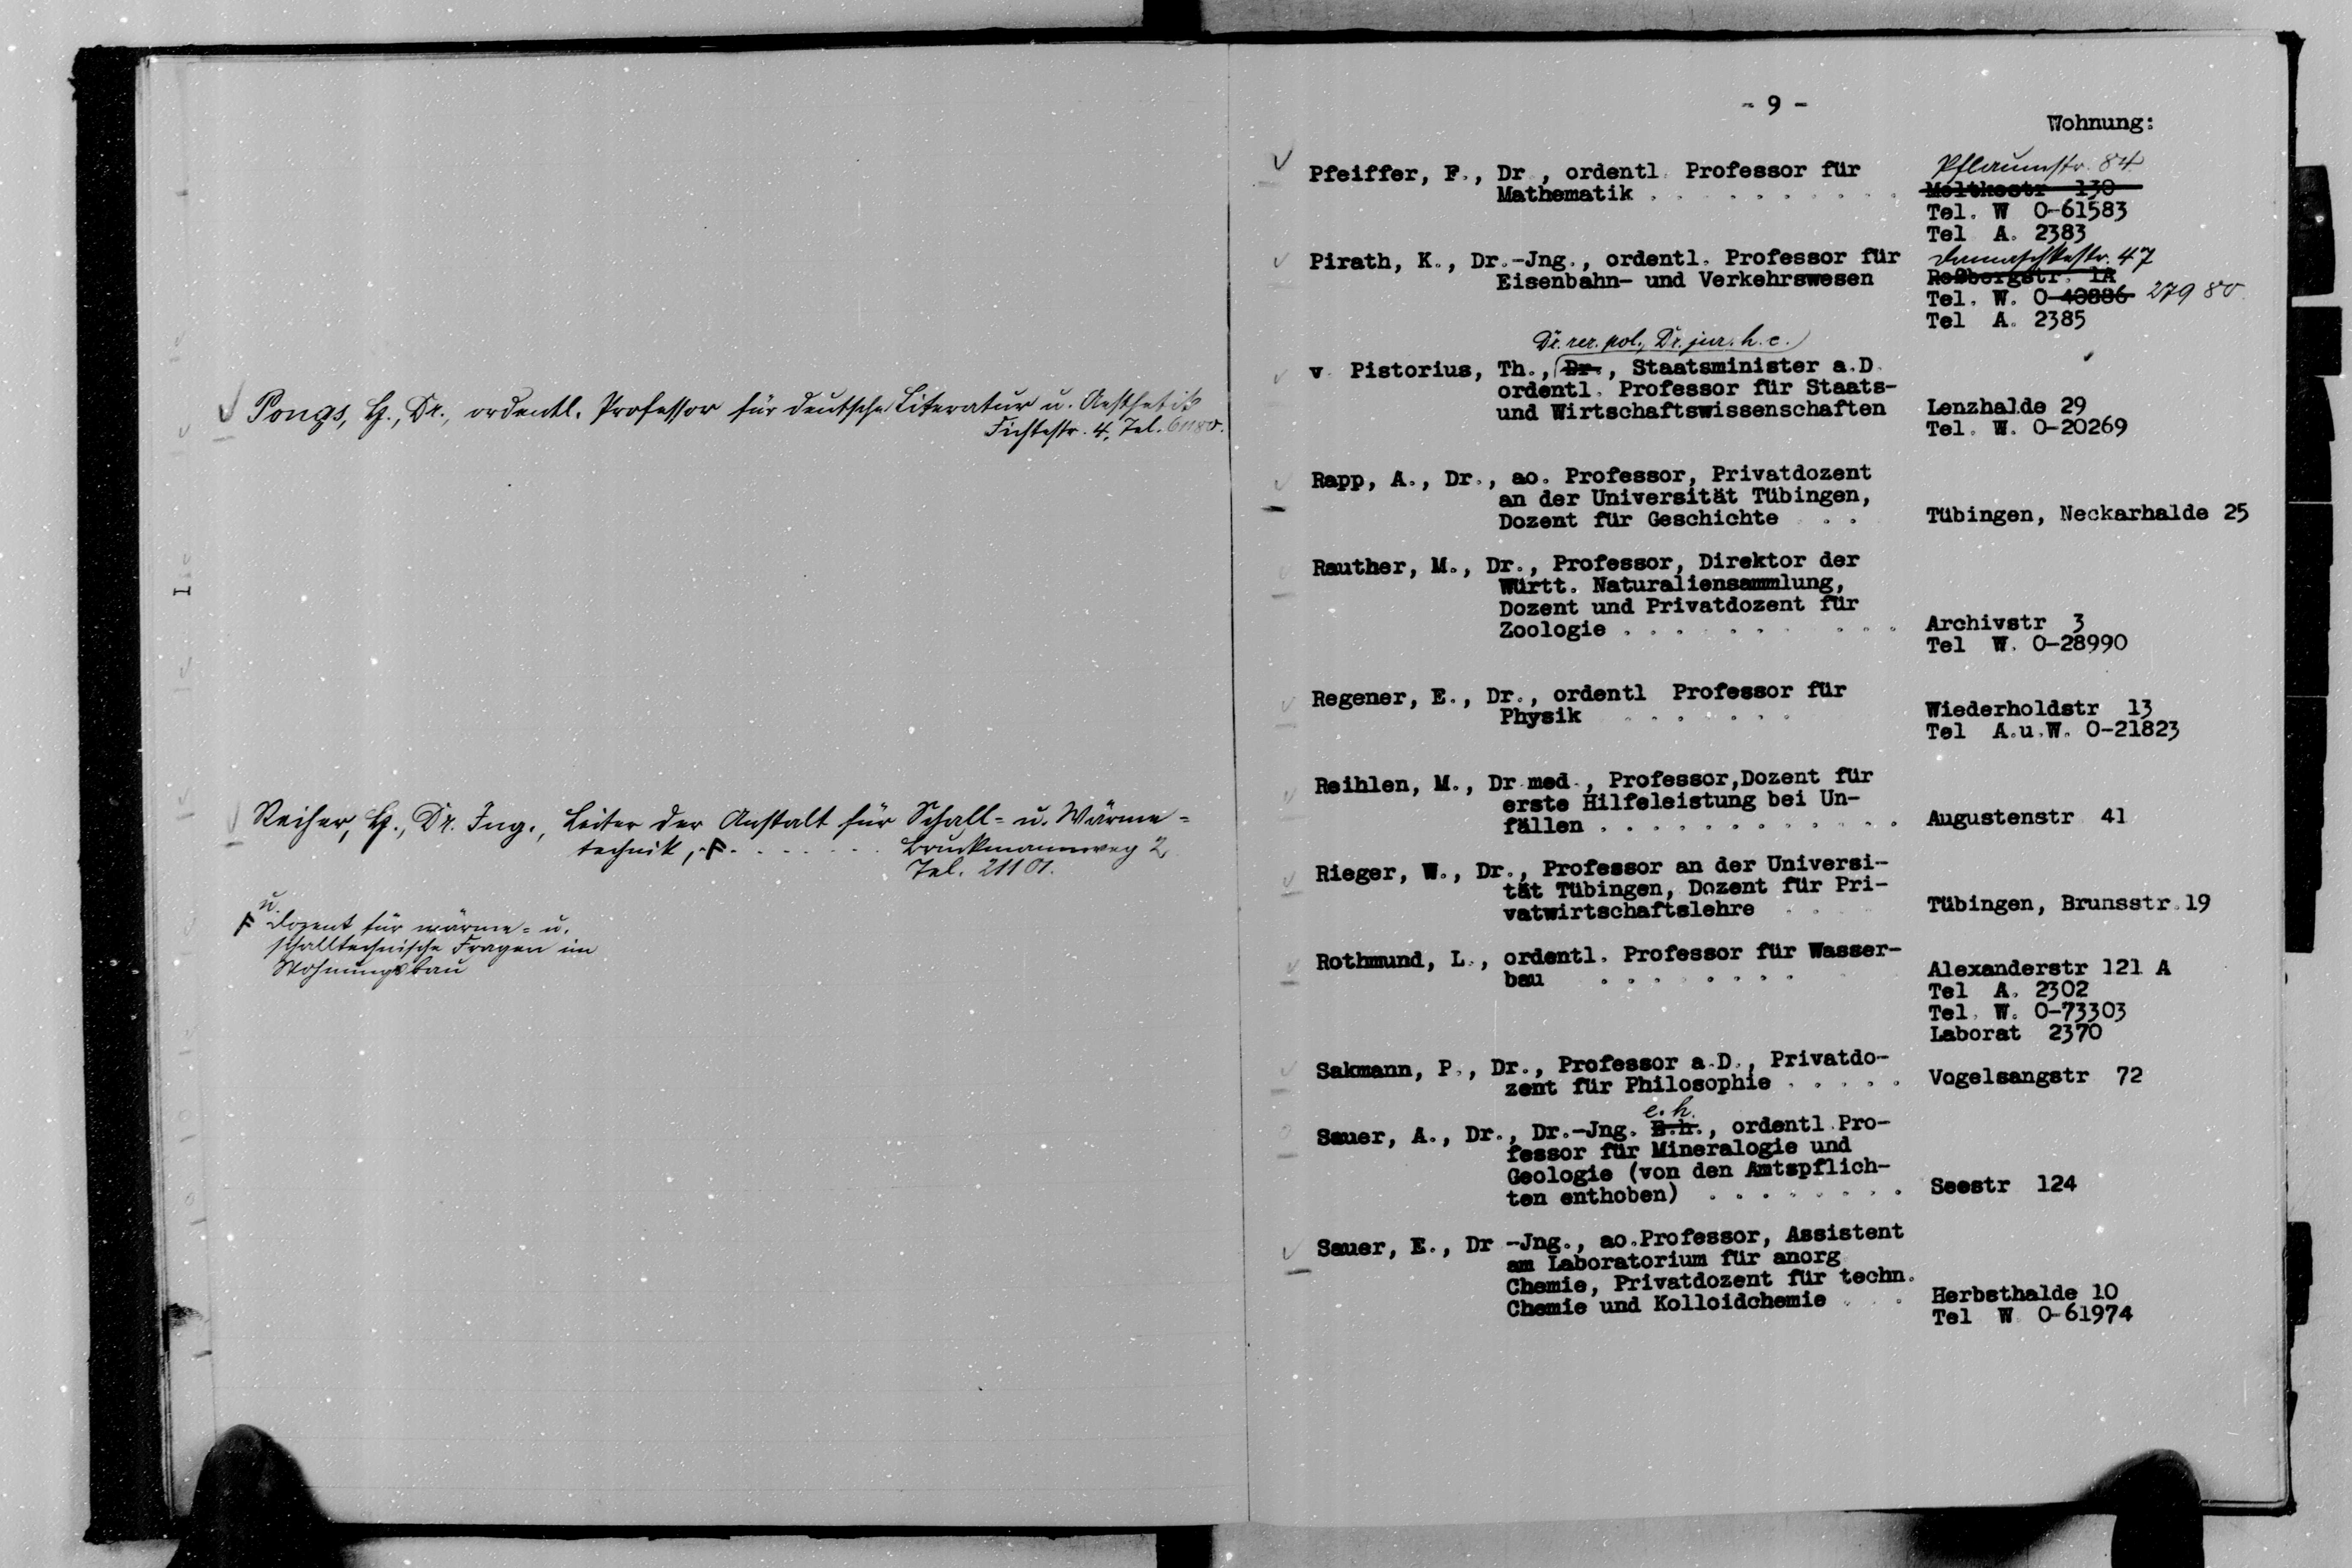 Pongs, H., Dr., ordentl. Professor für deutsche Literatur u. Aesthetik
Fichtestr. 4, Tel. 61180.
Reiher, H., Dr. Ing., Leiter der Anstalt für Schall- u. Wärme-
technik, F. . . . . . . . Bruckmannweg 2
Tel. 21101.
F u. Dozent für wärme- u.
schalltechnische Fragen im
Wohnungsbau
- 9 -
Wohnung:
Pfeiffer, F., Dr., ordentl. Professor für Pflaumstr. 84
Mathematik . . . . . . . . . . Moltkestr 130
Tel. W 0-61583
Tel A. 2383
Pirath, K., Dr.-Jng., ordentl. Professor für Damaschkestr. 47
Eisenbahn- und Verkehrswesen Roßbergstr. 1A
Tel. W. 0-40886 279 80
Tel A. 2385
Dr. rer. pol., Dr. jur. h. c.
v. Pistorius, Th., Dr., Staatsminister a.D.
ordentl. Professor für Staats-
und Wirtschaftswissenschaften Lenzhalde 29
Tel. W. 0-20269
Rapp, A., Dr., ao. Professor, Privatdozent
an der Universität Tübingen,
Dozent für Geschichte . . . Tübingen, Neckarhalde 25
Rauther, M., Dr., Professor, Direktor der
Württ. Naturaliensammlung,
Dozent und Privatdozent für
Zoologie . . . . . . . . . . Archivstr 3
Tel W. 0-28990
Regener, E., Dr., ordentl Professor für
Physik . . . . . . . Wiederholdstr 13
Tel A.u.W. 0-21823
Reihlen, M., Dr.med., Professor,Dozent für
erste Hilfeleistung bei Un-
fällen . . . . . . . . . . . . Augustenstr 41
Rieger, W., Dr., Professor an der Universi-
tät Tübingen, Dozent für Pri-
vatwirtschaftslehre . . . . Tübingen, Brunsstr.19
Rothmund, L., ordentl. Professor für Wasser-
bau . . . . . . . . Alexanderstr 121 A
Tel A. 2302
Tel. W. 0-73303
Laborat 2370
Sakmann, P., Dr., Professor a.D., Privatdo-
zent für Philosophie . . . . . Vogelsangstr 72
e. h.
Sauer, A., Dr., Dr.-Jng. E.h., ordentl.Pro-
fessor für Mineralogie und
Geologie (von den Amtspflich-
ten enthoben) . . . . . . . . Seestr 124
Sauer, E., Dr -Jng., ao.Professor, Assistent
am Laboratorium für anorg
Chemie, Privatdozent für techn.
Chemie und Kolloidchemie . . . Herbsthalde 10
Tel W. 0-61974